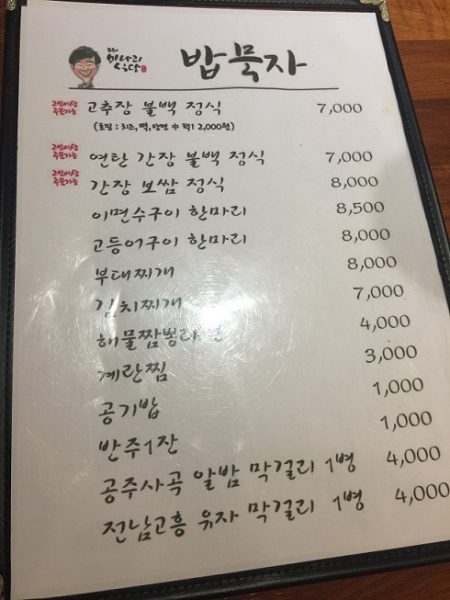 미나리
식당
밥묵자
2인이상
주문가능
고추장 불백 정식 7,000
2인이상
주문가능
연탄 간장 불백 정식 7,000
2인이상
주문가능
간장 보쌈 정식 8,000
이면수구이 한마리 8,500
고등어구이 한마리 8,000
부대찌개 8,000
김치찌개 7,000
해물짬뽕라면 4,000
계란찜 3,000
공기밥 1,000
반주1잔 1,000
공주사곡 알밤 막걸리 1병 4,000
전남고흥 유자 막걸리 1병 4,000